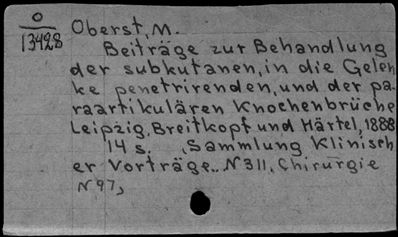 O
13428
Oberst, M.
Beiträge zur Behandlung
der subkutanen, in die Gelen
ke penetrirenden, und der pa-
raartikulären Knochenbrüche
Leipzig, Breitkopf und Härtel, 1888
14 s. Sammlung Klinisch
er Vorträge.. N 311, Chirurgie
N 97,